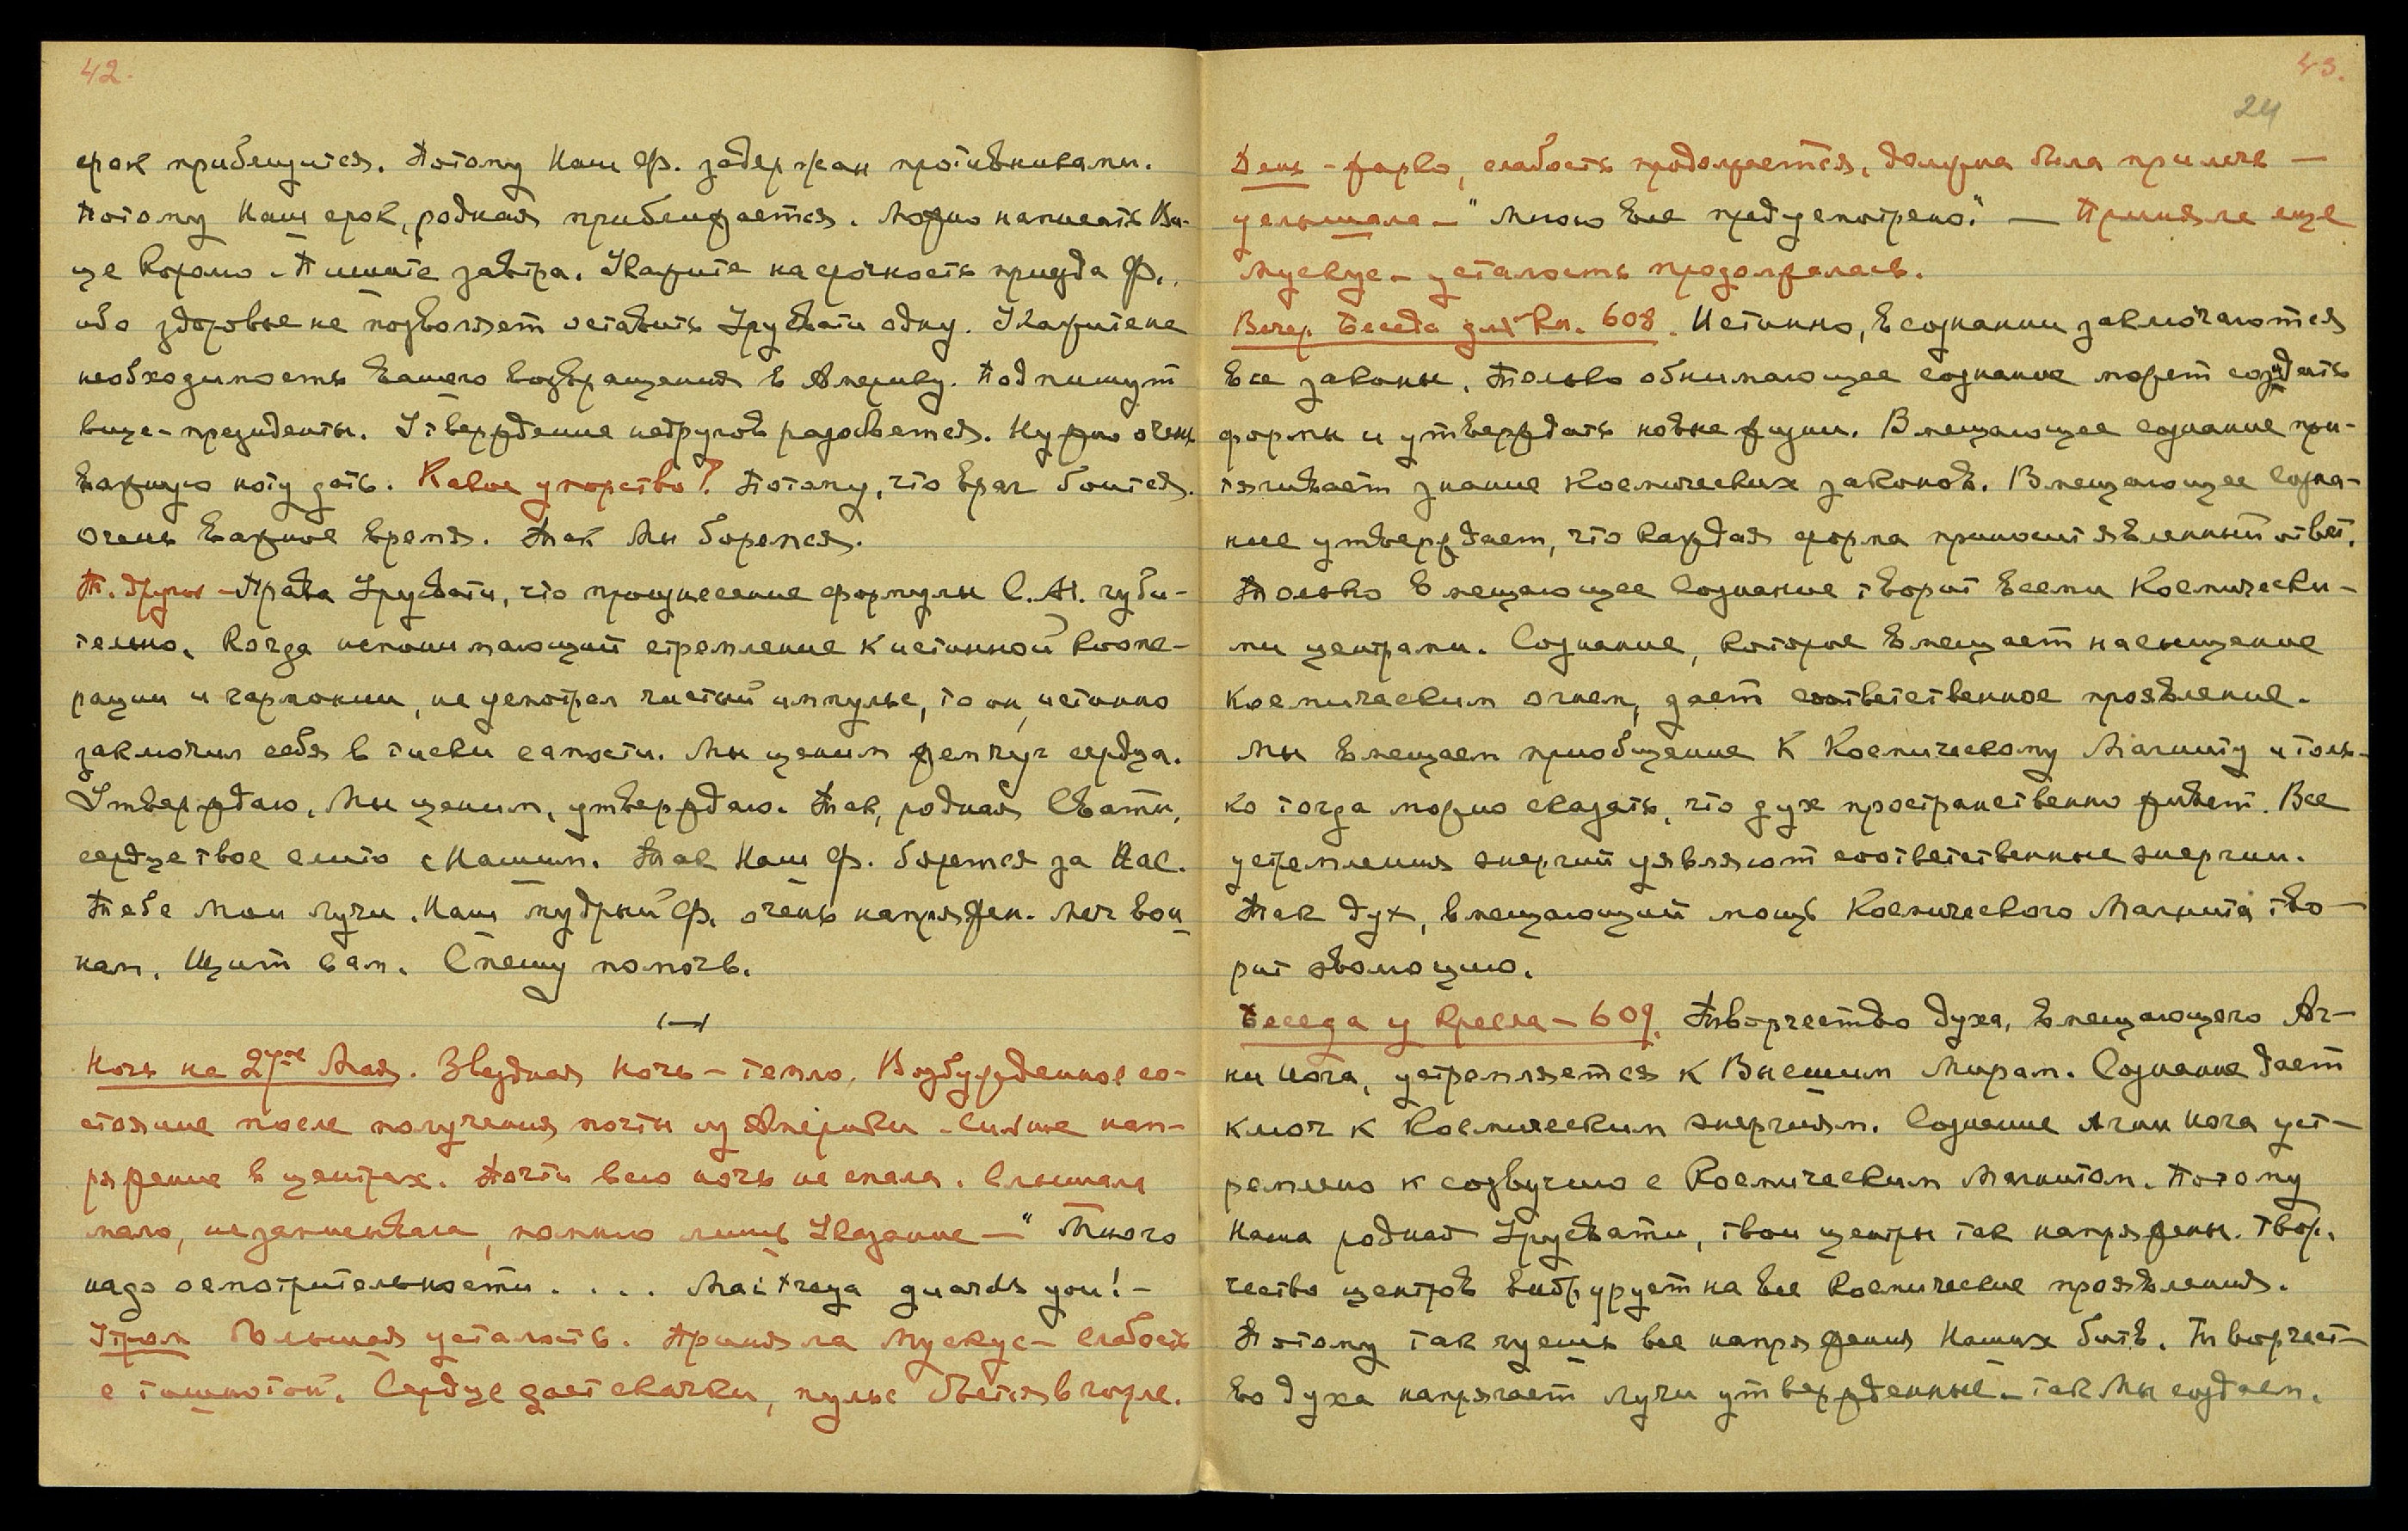 42.
срок приблизится. Потому Наш Ф. задержан противниками.
Потому Наш срок, родная приближается. Можно написать Ви-
це Короло. Пишите завтра. Укажите на срочность приезда Ф.,
ибо здоровье не позволяет оставить Урусвати одну. Укажите на
необходимость Вашего возвращения в Америку. Подпишут
вице-президенты. Утверждение недругов разовьется. Нужно очень
важную ноту дать. Какое упорство? Потому, что враг боится.
Очень важное время. Так Мы боремся.
П. других - Права Урусвати, что произнесение формулы С.М. губи-
тельно. Когда испонимающий стремление к истинной коопе-
рации и гармонии, не усмотрел чистый импульс, то он, истинно
заключил себя в тиски самости. Мы ценим жемчуг сердца.
Утверждаю, Мы ценим, утверждаю. Так, родная Свати,
сердце твое слито с Нашим. Так Наш Ф. борется за Нас.
Тебе Мои Лучи. Наш мудрый Ф. очень напряжен. Меч вои
нам. Щит вам. Спешу помочь.
Ночь на 27ое Мая. Звездная ночь - тепло. Возбужденное со-
стояние после получения почты из Америки. Сильное нап-
ряжение в центрах. Почти всю ночь не спала. Слышала
мало, не записывала, помню лишь Указание - "Много
надо осмотрительности . . . . Maitreya guards you! -
Утром Большая усталость. Приняла Мускус - слабость
с тошнотой. Сердце дает скачки, пульс бьется в горле.
43.
24
День - жарко, слабость продолжается, должна была прилечь -
услышала - "Мною все предусмотрено." - Приняла еще
мускус - усталость продолжалась.
Вечер. Беседа для Кн. 608. Истинно, в сознании заключаются
все законы. Только обнимающее сознание может создать
формы и утверждать новые жизни. Вмещающее сознание при-
тягивает знание Космических законов. Вмещающее созна-
ние утверждает, что каждая форма приносит явленный ответ.
Только вмещающее сознание творит всеми Космически-
ми центрами. Сознание, которое вмещает насыщение
Космическим огнем, дает соответственное проявление.
Мы вмещаем приобщение к Космическому Магниту и толь-
ко тогда можно сказать, что дух пространственно живет. Все
устремления энергий уявляют соответственные энергии.
Так дух, вмещающий мощь Космического Магнита тво-
рит эволюцию.
Беседа у Кресла - 609. Творчество духа, вмещающего Аг-
ни Йога, устремляется к Высшим Мирам. Сознание дает
ключ к Космическим энергиям. Сознание Агни Йога уст-
ремлено к созвучию с Космическим Магнитом. Потому
Наша родная Урусвати, твои центры так напряжены. Твор-
чество центров вибрирует на все Космические проявления.
Потому так чуешь все напряжения Наших битв. Творчест-
во духа напрягает лучи утвержденные - так Мы создаем.